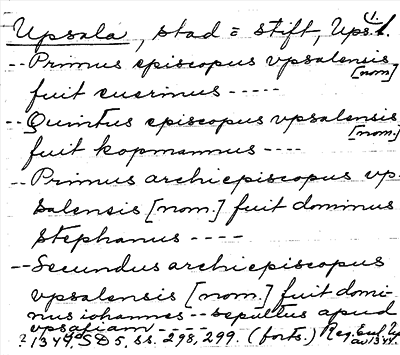 1.
Upsala, stad = stift, Ups. l.
-- Primus episcopus vpsalensis [nom]
fuit euerinus -----
-- Quintus episcopus vpsalensis [nom.]
fuit kopmannus ----
-- Primus archiepiscopus vp-
salensis [nom.] fuit dominus
stephanus ----
-- Secundus archiepiscopus
vpsalensis [nom.] fuit domi-
nus iohannes -- sepultus apud
vpsaliam -----
? 1344. SD 5, ss. 298, 299. (forts.) Reg. Eccl. Ups.
av 1344.